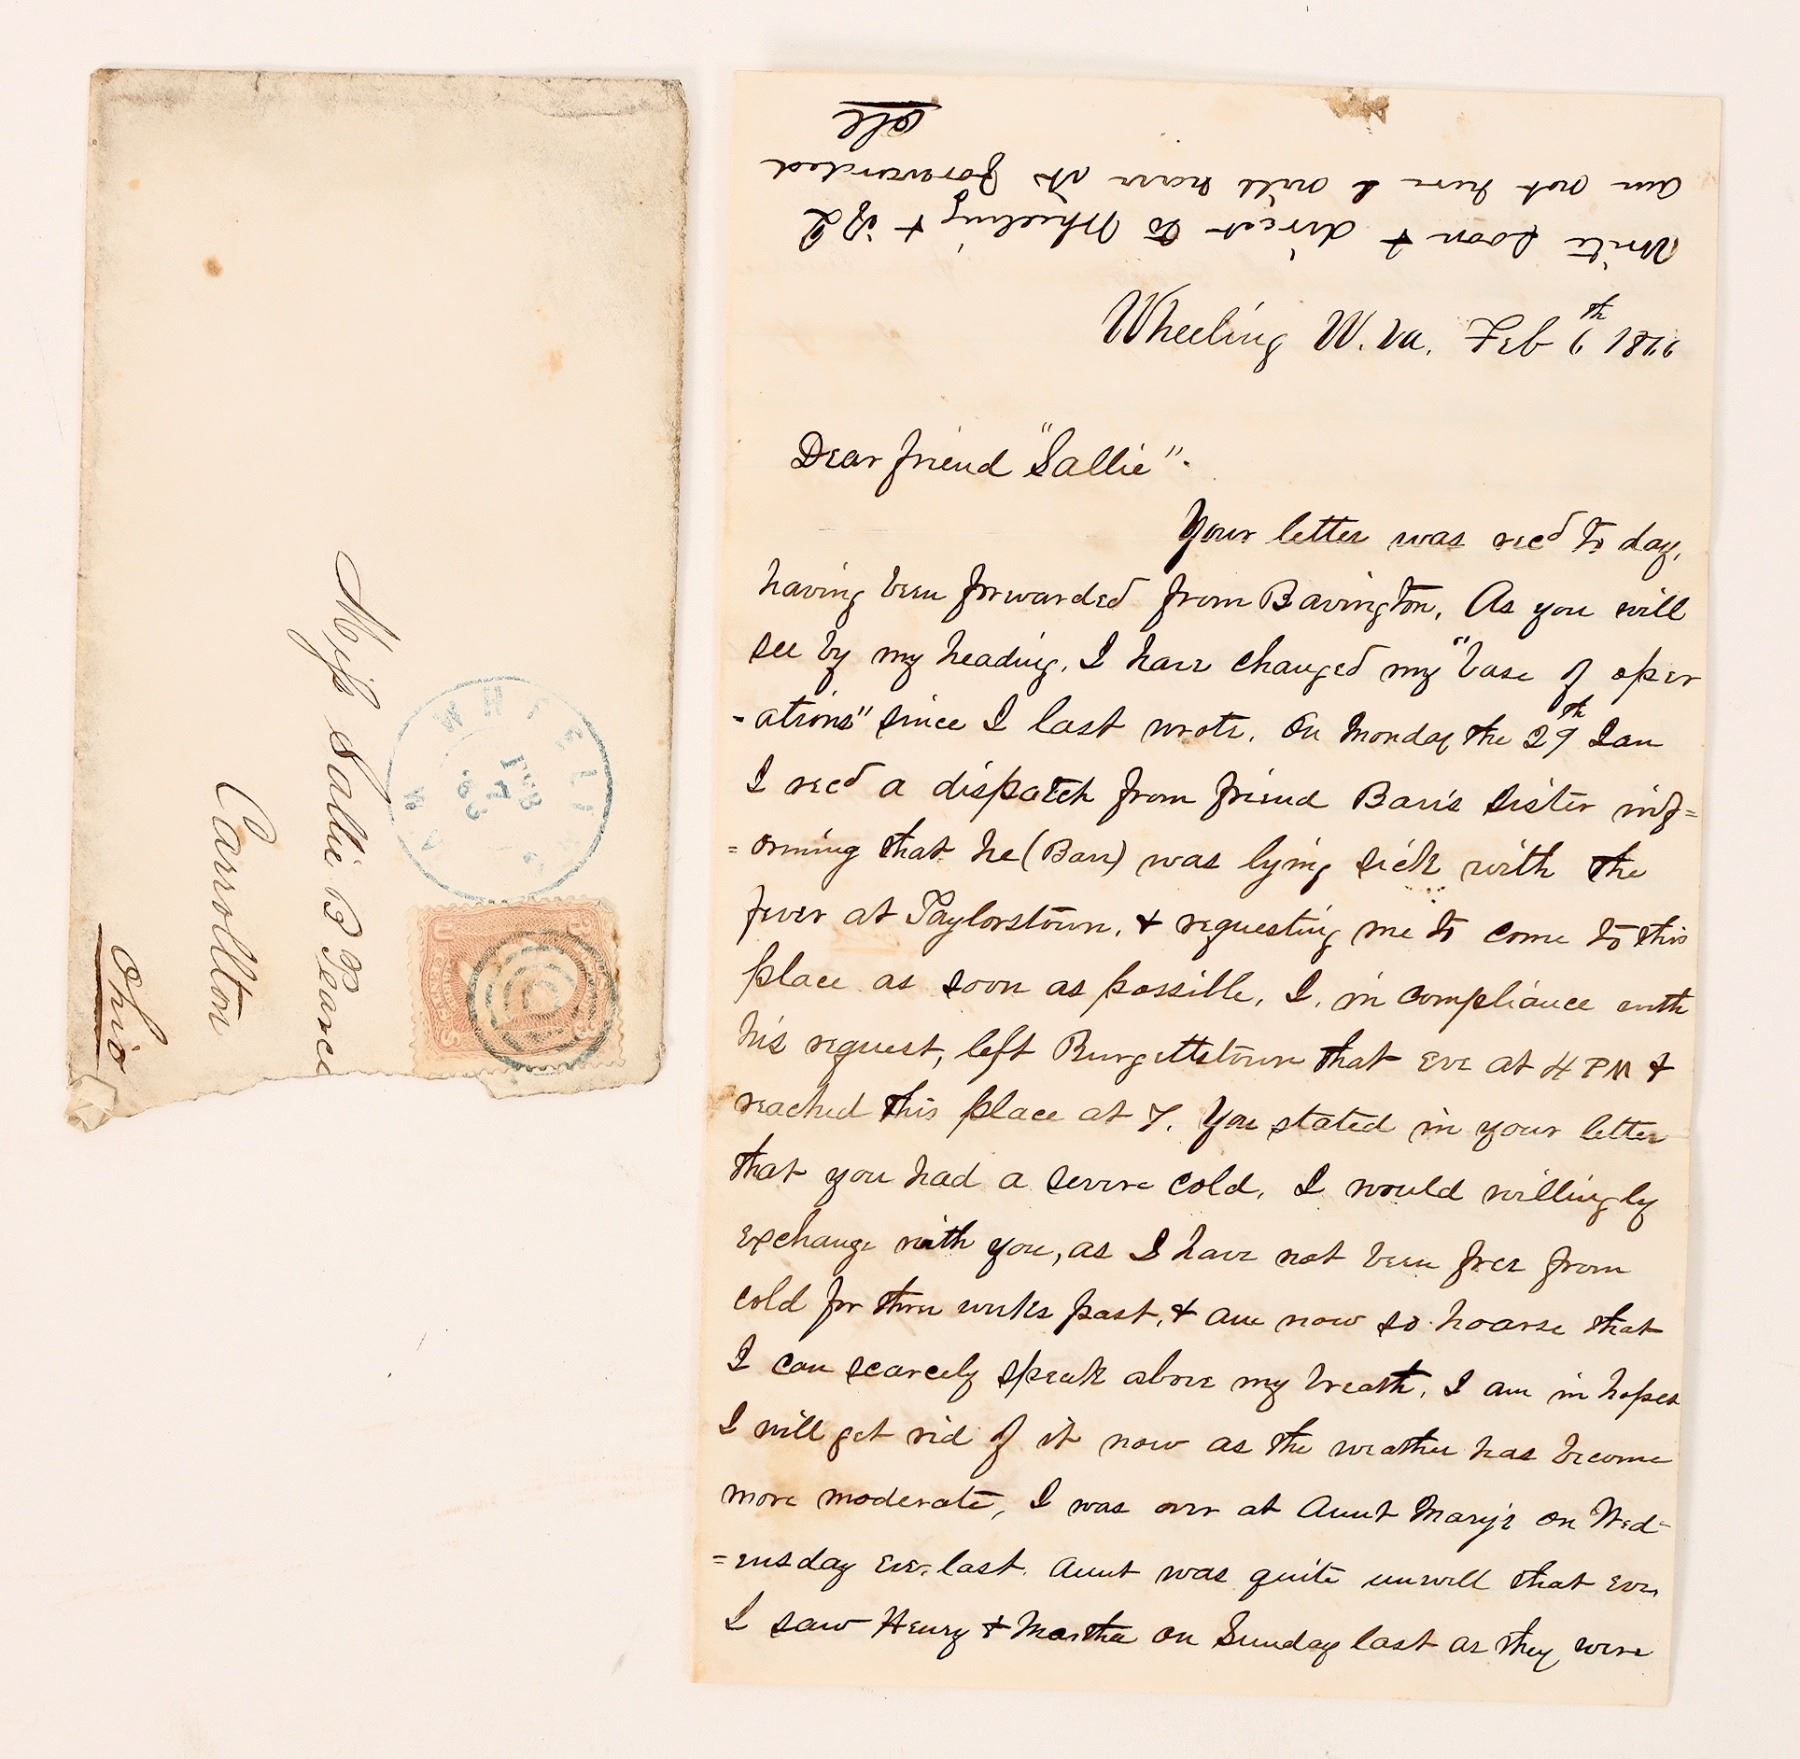 Miss Sallie B Pearce
Carrollton
Ohio
WHEELING
FEB
7
W VA
U 3
3
Write soon & direct to Wheeling & if I
am not here I will have it forwarded
Wheeling W. Va. Feb 6th 1866
Dear friend "Sallie".
Your letter was recd to day,
having been forwarded from Bavington. As you will
see by my heading, I have changed my "base of oper
-ations" since I last wrote. On Monday the 29th Jan
I recd a dispatch from friend Barr's sister inf=
=orming that he (Barr) was lying sick with the
fever at Taylorstown, & requesting me to come to this
place as soon as possible, I, in compliance with
his request, left Burgettstown that eve at 4 PM &
reached this place at 7. You stated in your letter
that you had a severe cold, I would willingly
exchange with you, as I have not been free from
cold for three weeks past, & am now so hoarse that
I can scarcely speak above my breath, I am in hopes
I will get rid of it now as the weather has become
more moderate, I was over at Aunt Mary's on Wed-
=ensday eve. last. Aunt was quite unwell that eve,
I saw Henry & Martha on Sunday last as they were